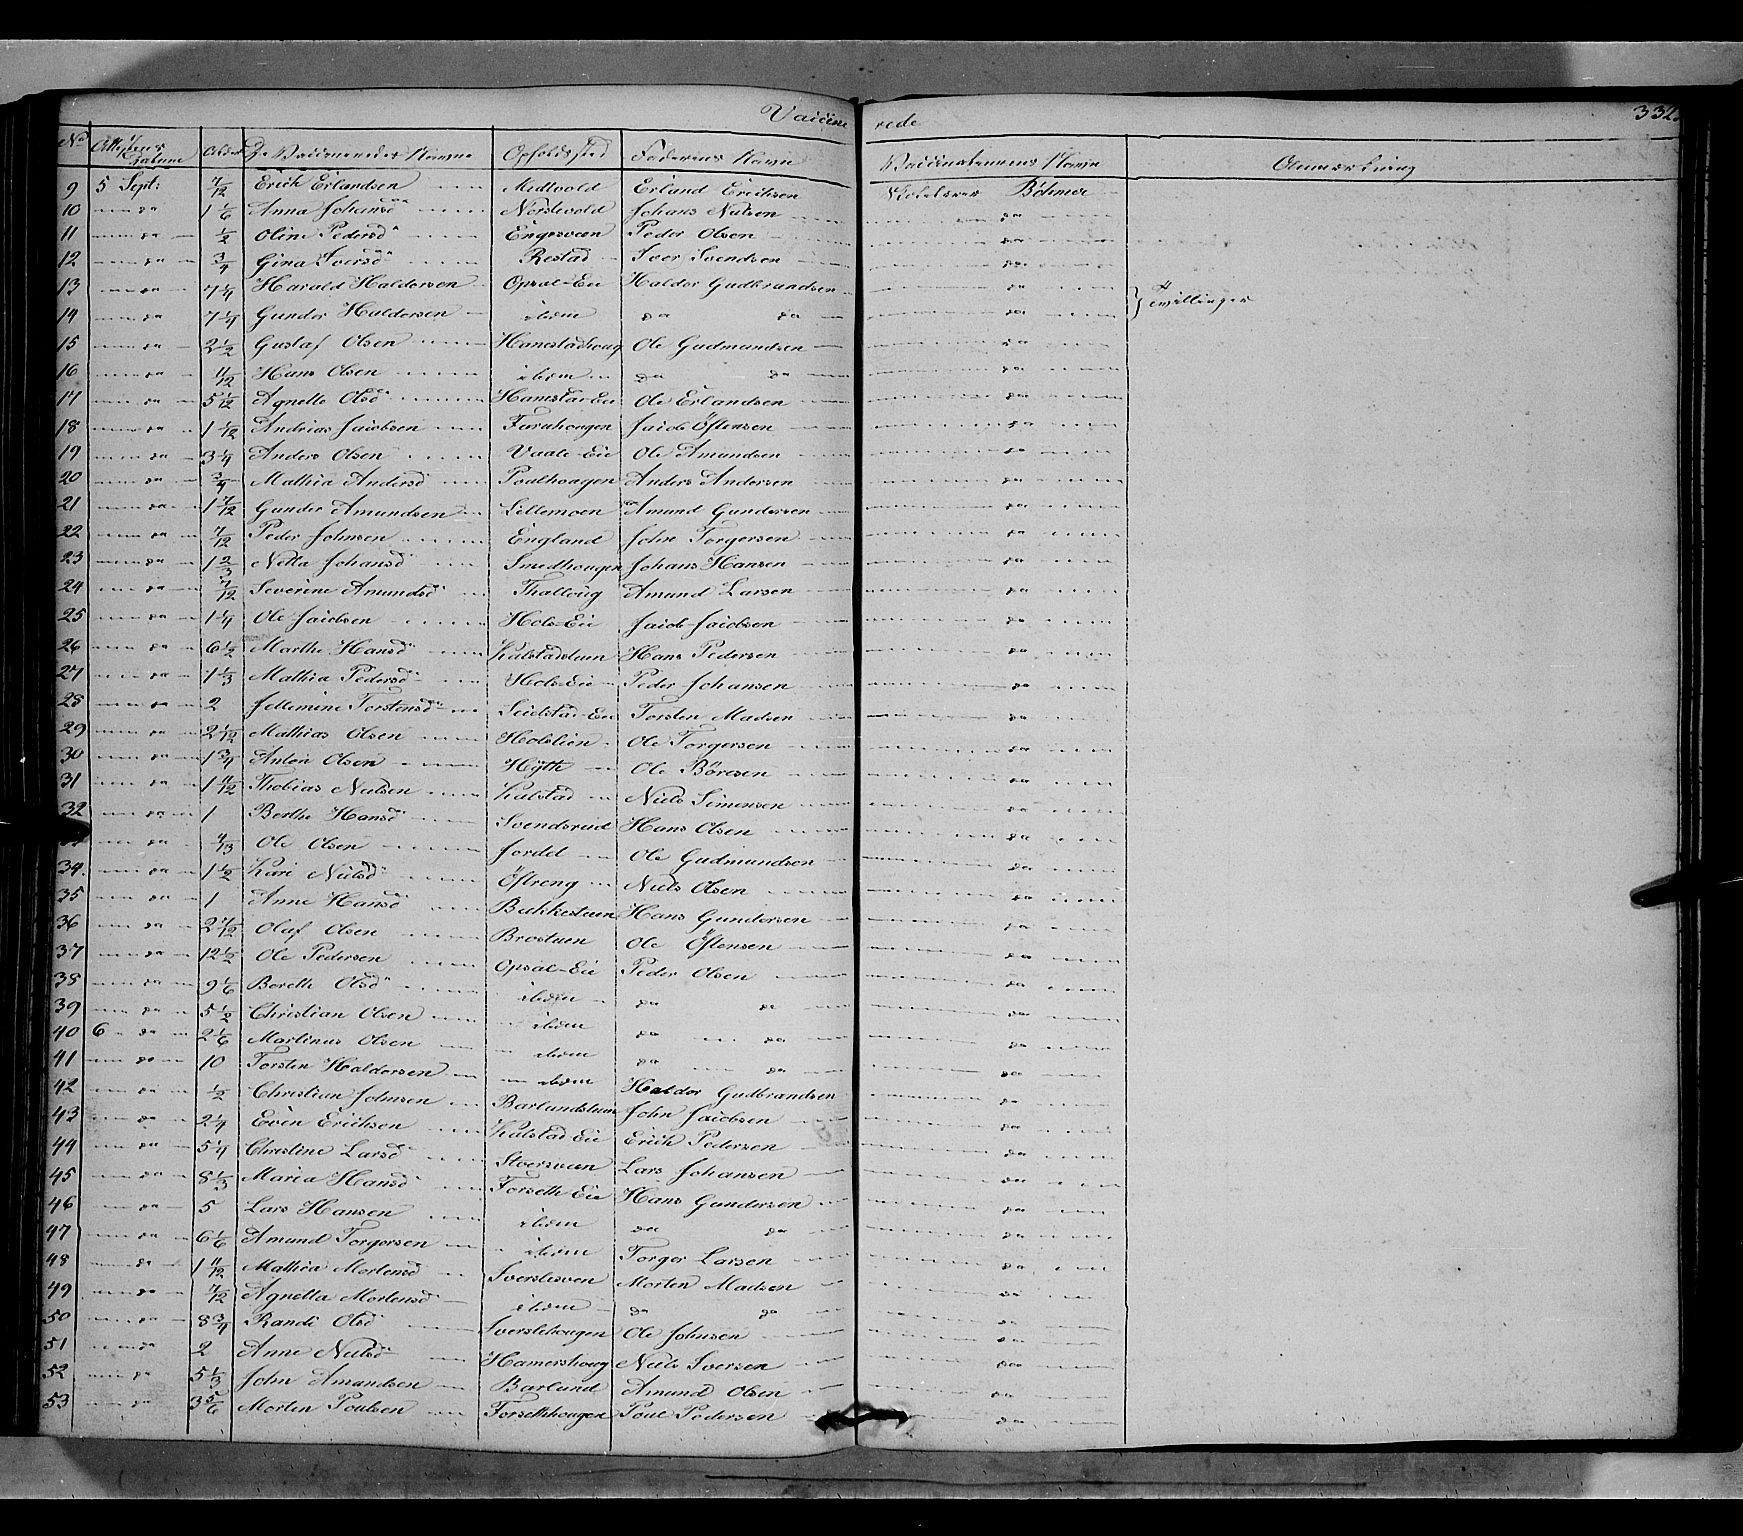 Vaccine rede 332
No Attestens Datum Alder De Vaccineredes Navne Opholdssted Faderens Navn Vaccinateurens Navn Anmærkning
9 5 Sept: 7/12 Erich Erlandsen Midtvold Erland Erichsen Böhmer
10 da 1 1/6 Anna Johansd Nordvold Johans Nielsen da
11 da 1/2 Oline Pedersd Engesveen Peder Olsen da
12 da 3/4 Gina Iversd Restad Iver Svendsen da
13 da 7 1/4 Harald Haldorsen Opsal-Eie Haldor Gudbrandsen da } Tvillinger
14 da 7 1/4 Gunder Haldorsen ibidem da da da
15 da 2 1/2 Gustaf Olsen Hamstadhoug Ole Gudmundsen da
16 da 11/12 Hans Olsen ibidem da da da
17 da 5 1/12 Agnethe Olsd Hamstai-Eie Ole Erlandsen da
18 da 1 1/12 Andrias Jacobsen Furuhougen Jacob Östensen da
19 da 3 1/4 Anders Olsen Vaale-Eie Ole Amundsen da
20 da 3/4 Mathia Andersd Poalhougen Anders Andersen da
21 da 1 7/12 Gunder Amundsen Lillemoen Amund Gundersen da
22 da 7/12 Peder Johnsen England John Torgersen da
23 da 1 2/3 Netta Johansd Smedhougen Johans Hansen da
24 da 7/12 Severine Amundsd Thalloug Amund Larsen da
25 da 1 1/4 Ole Jacobsen Hols-Eie Jacob Jacobsen da
26 da 6 1/2 Marthe Hansd Kalstadstuen Hans Pedersen da
27 da 1 1/3 Mathia Pedersd Hols-Eie Peder Johansen da
28 da 2 Jellemine Torstensd Torsten Madsen da
29 da 2 1/12 Mathias Olsen Holslien Ole Torgersen da
30 da 1 3/4 Anton Olsen Hytte Ole Böresen da
31 da 1 11/12 Thobias Nielsen Kalstad Niels Simensen da
32 da 1 Berthe Hansd Svendsrud Hans Olsen da
da Ole Olsen Jordet Ole Gudmundsen da
34. da 1 1/2 Kari Nielsd Östreng Niels Olsen da
35 da 1 Anne Hansd Bakkestuen Hans Gundersen da
36 da 2 7/12 Olaf Olsen Brostuen Ole Östensen da
37 da 12 1/2 Ole Pedersen Opsal-Eie Peder Olsen da
38 da 9 1/6 Berethe Olsd ibidem da da da
39 da 5 1/2 Christian Olsen ibidem da da da
40 6 da 2 1/6 Martinus Olsen ibidem da da da
41 da 10 Torsten Haldorsen ibidem Haldor Gudbrandsen da
42 da 1/2 Christian Johnsen Barlundstuen John Jacobsen da
43 da 2 1/4 Even Erichsen Kalstad Eie Erich Pedersen da
44 da 5 1/4 Christine Larsd Storsveen Lars Johansen da
45 da 8 1/3 Maria Hansd Forseth Eie Hans Gundersen da
46 da 5 Lars Hansen ibidem da da da
47 da 6 1/6 Amund Torgersen ibidem Torger Larsen da
48 da 1 11/12 Mathea Mortensd Sverslesveen Morten Madsen da
49 da 7/12 Agnetta Mortensd ibidem da da da
50 da 8 3/4 Randi Olsd Sverslehougen Ole Johnsen da
51 da 2 Anne Nielsd Hamershoug Niels Iversen da
52 da 5 1/3 John Amundsen Barlund Amund Olsen da
53 da 3 5/6 Morten Poulsen Forsethhougen Poul Pedersen da